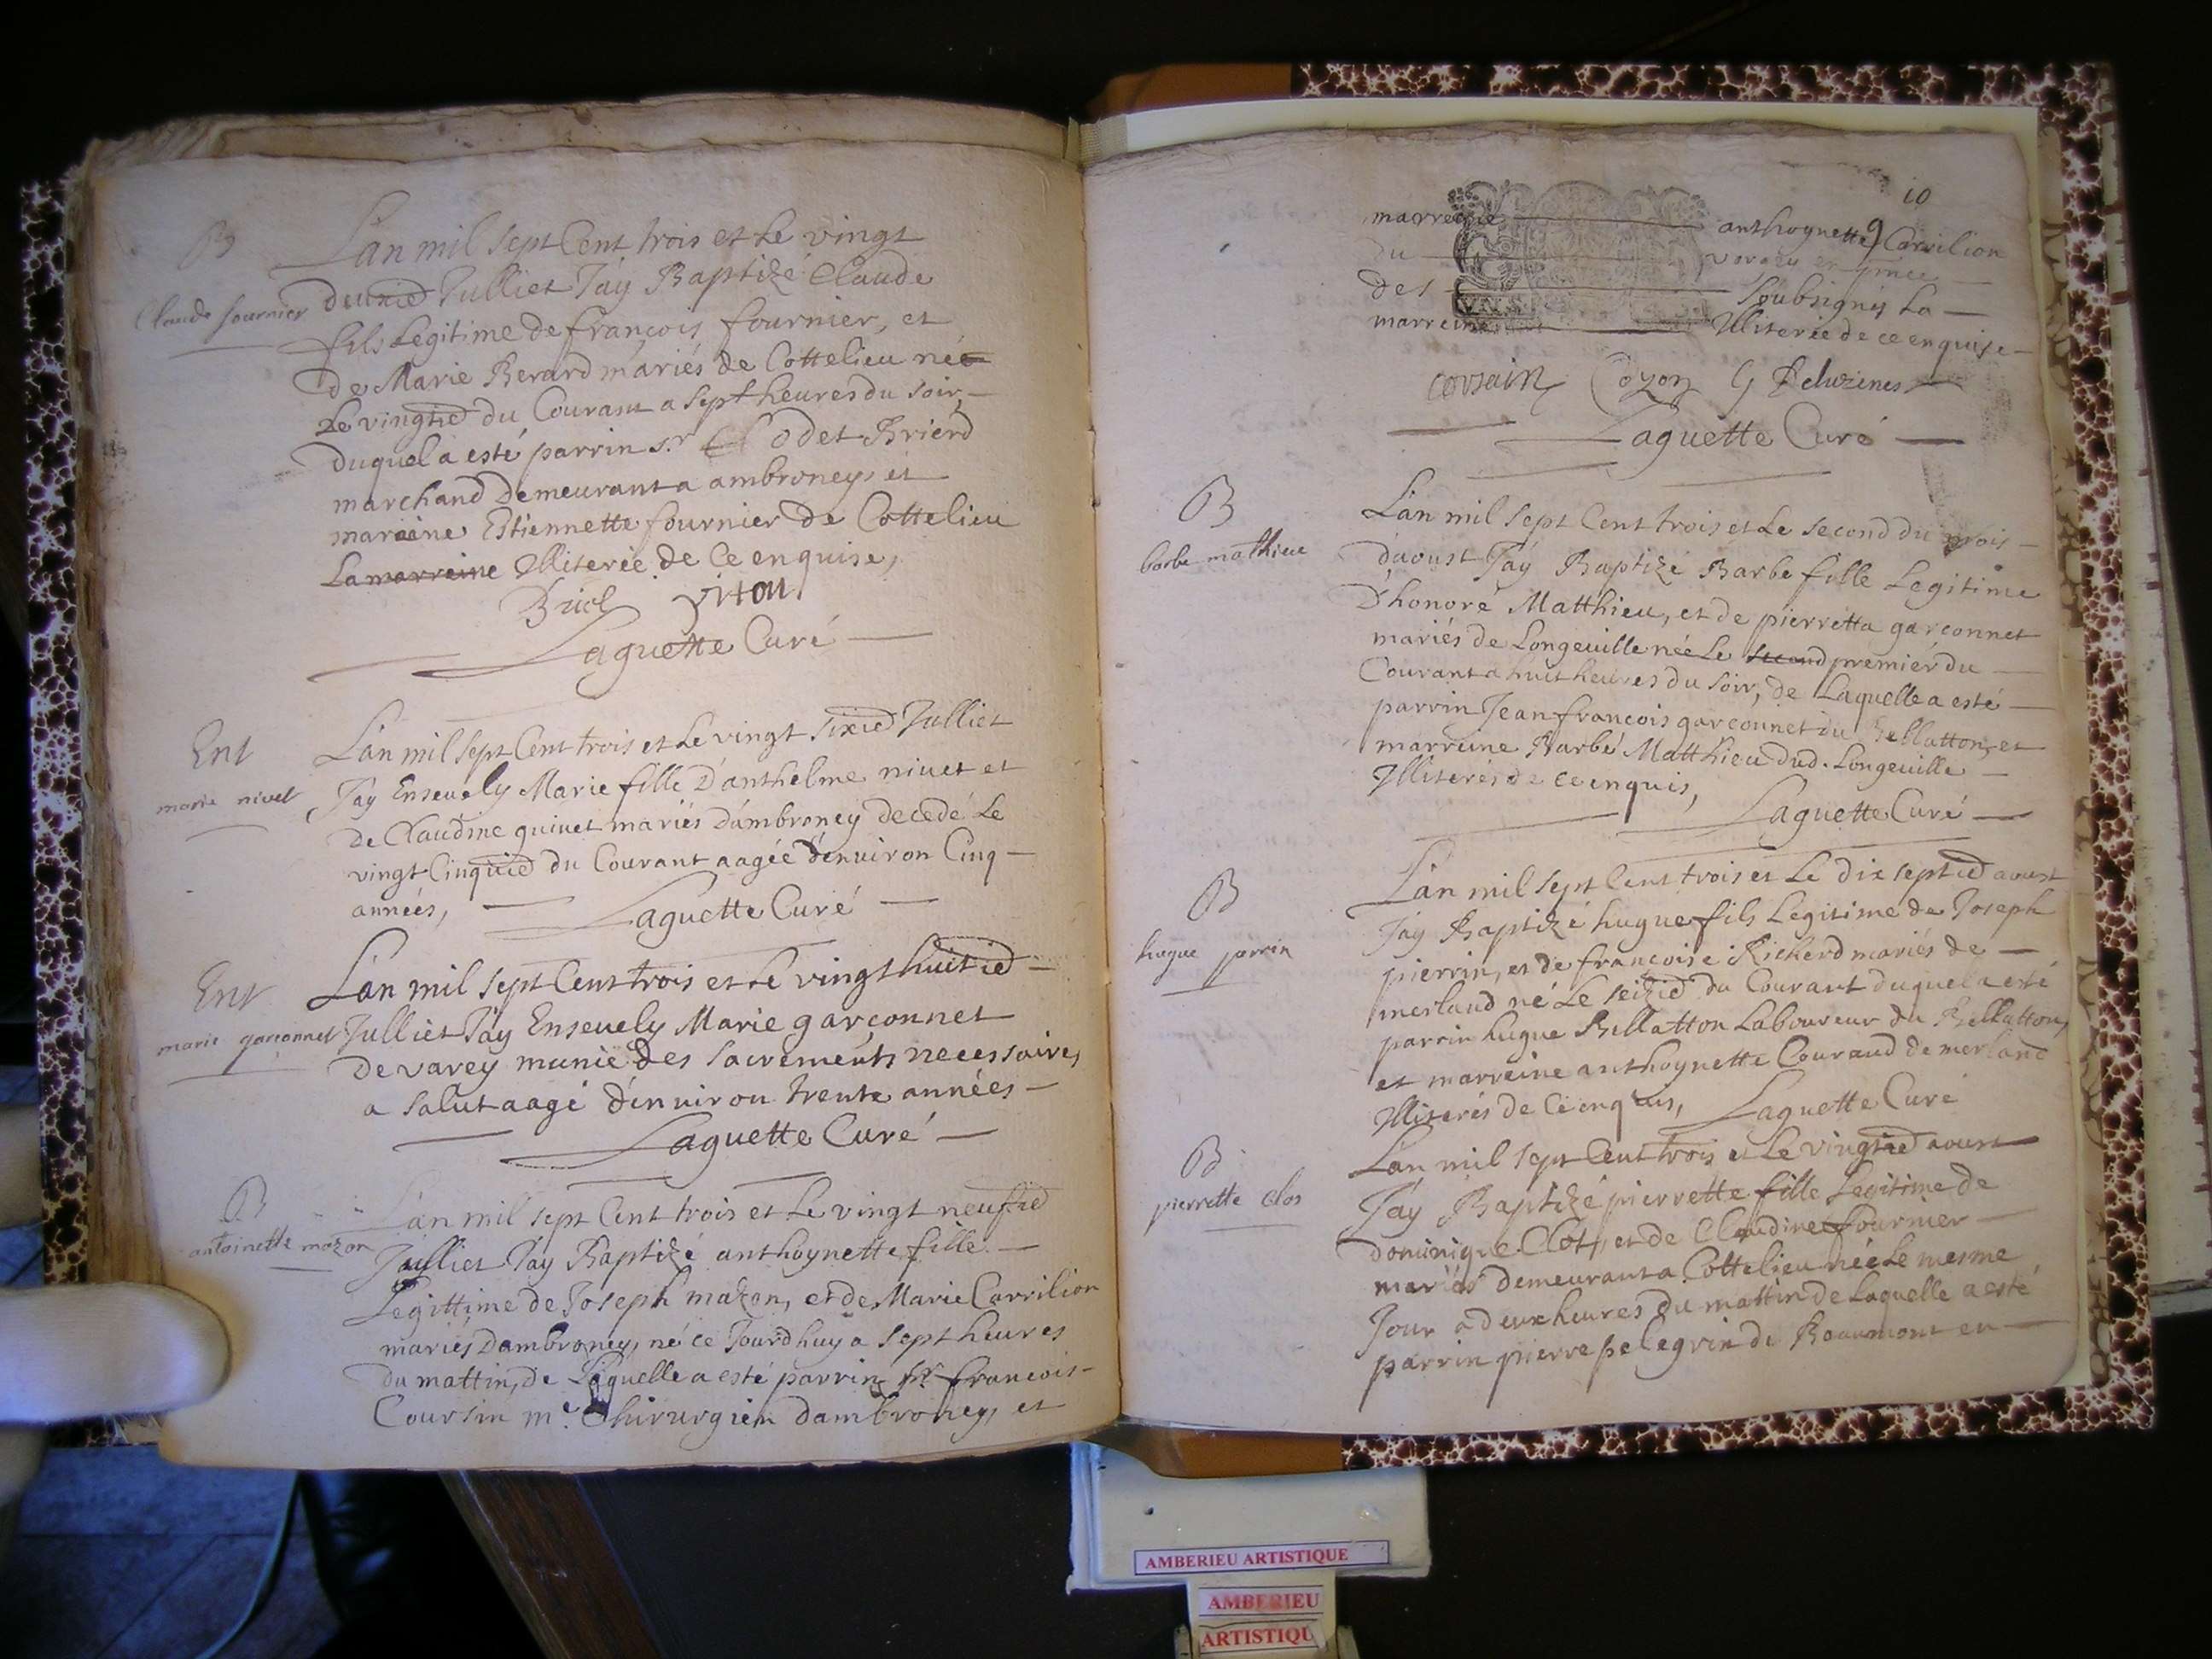 B
Claude fournier
L'an mil sept Cent trois et Le vingt
deuxied Julliet J'ay Baptizé Claude
fils Legitime de françois fournier, et
de Marie Berard mariés de Cottelieu née
Le vingtied du Courant a sept heures du soir,
duquel a esté parrin s.r Clodet Brierd
marchand Demeurant a ambroneys et
maraine Estiennette fournier de Cottelieu
La marreine Illiterée de Ce enquise,
Laguette Curé
Ent
marie nivet
L'an mil sept Cent trois et Le vingt sixied Julliet
J'ay Ensevely Marie fille D'anthelme nivet et
de Claudine quivet mariés d'ambroney decedé Le
vingt Cinquied du Courant aagée d'environ Cinq
années,
Laguette Curé
Ent
marie garconnet
L'an mil sept Cent trois et Le vingt huitied
Julliet J'ay Ensevely Marie garçonnet
de varey munie des sacrements necessaires
a salut aagé d'environ trente années
Laguette Curé
B
antoinette mozon
L'an mil sept Cent trois et Le vingt neufied
Julliet J'ay Baptizé anthoynette fille
Legittime de Joseph mazon, et de Marie Carrilion
mariés Dambroney, né ce Jourdhuy a sept heures
du mattin, de Laquelle a esté parrin sr. francois
Coursin m.e Chirurgien dambroney, et
10
9
marreine anthoynette Carrilion
du
des soubsignés La
marreine Illiterée de ce enquise
corsain Cozon G Deluzines
Laguette Curé
B
barbe mathieu
L'an mil sept Cent trois et Le second du mois
d'aoust J'ay Baptizé Barbe fille Legitime
D'honoré Matthieu, et de pierretta garconnet
mariés de Longeuille née Le second premier du
Courant a huit heures du soir, de Laquelle a esté
parrin Jean francois garconnet du Bellatton, et
marreine Barbe Matthieu dud. Longeuille
Illiterés de ce enquis,
Laguette Curé
B
hugue perrin
L'an mil sept Cent trois et Le dix septied aoust
J'ay Baptizé hugue fils Legitime de Joseph
pierrin, et de francoise Richerd mariés de
merland né Le seizied du Courant duquel a esté
parrin hugue Bellatton Laboureur du Bellatton,
et marreine anthoynette Couraud de merland
Illiterés de Ce enquis, Laguette Curé
B
pierrette clos
L'an mil sept Cent trois et Le vingtied aoust
J'ay Baptizé pierrette fille Legitime de
dominique Clot, et de Claudine fournier
mariés demeurant a Cottelieu née Le mesme
Jour a deux heures du mattin de Laquelle a esté
parrin pierre pelegrin de Beaumont en
AMBERIEU ARTISTIQUE
AMBERIEU
ARTISTIQU